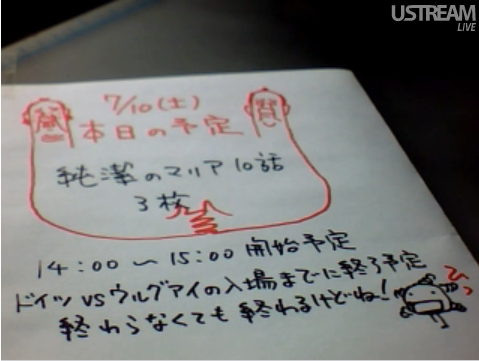 USTREAM
LIVE
7/10(土)
本日の予定
純潔のマリア10話
3枚
14:00〜15:00開始予定
ドイツvsウルグアイの入場までに終了予定
終わらなくても終わるけどね!